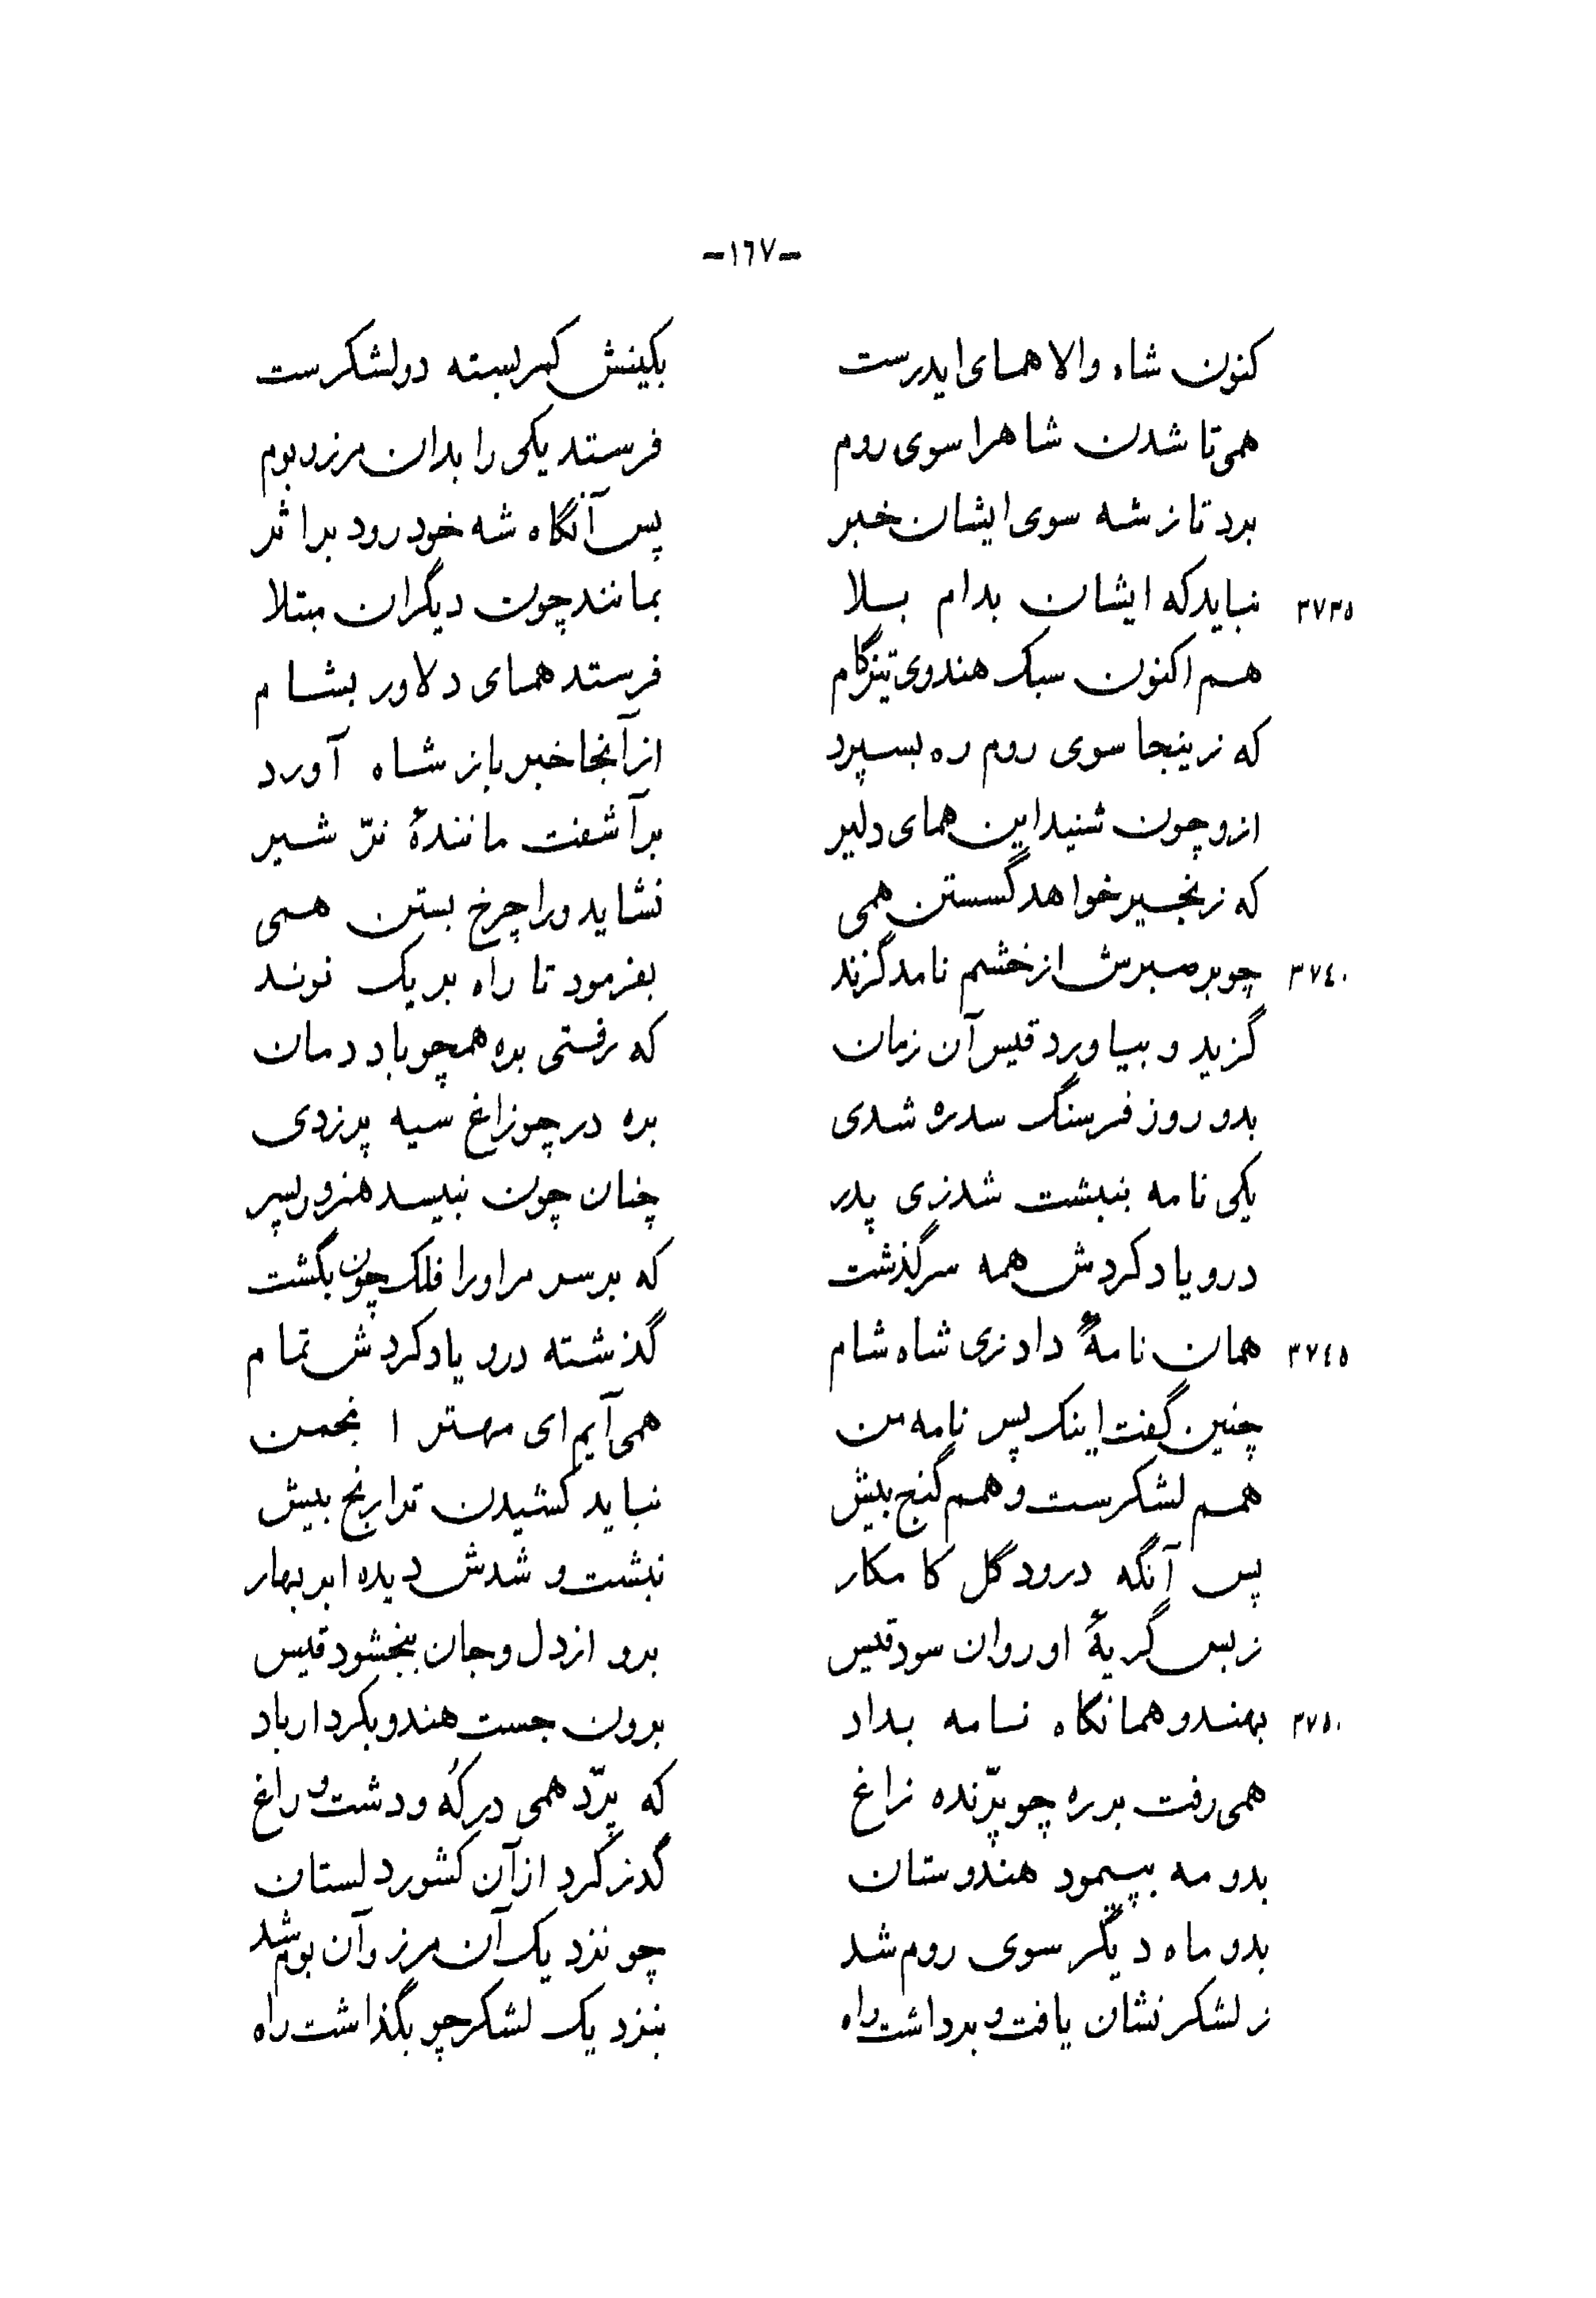 -١٦٧-
کنون شاه والا همای ایدرست بکینش کمر بسته دو لشکرست
همی تا شدن شاهرا سوی روم فرستد یکی را بدان مرز و بوم
برد تا ز شه سوی ایشان خبر پس آنگاه شه خود رود بر اثر
٣٧٣٥ نباید که ایشان بدام بلا بمانند چون دیگران مبتلا
هم اکنون سبک هندوی تیزگام فرستد همای دلاور بشام
که زینجا سوی روم ره بسپرد از آنجا خبر باز شاه آورد
ازو چون شنید این همای دلیر برآشفت مانندهٔ نرّ شیر
که زنجیر خواهد گسستن همی نشاید ورا چرخ بستن همی
٣٧٤٠ چو بر صبرش از خشم نامد گزند بفرمود تا راه بر یک نوند
گزید و بیاورد قیس آن زمان که رفتی بره همچو باد دمان
بدو روز فرسنگ سدره شدی بره در چو زاغ سیه پر زدی
یکی نامه بنبشت شد زی پدر چنان چون نبیسد هنرور پسر
درو یاد کردش همه سرگذشت که بر سر مر اورا فلک چون بگشت
٣٧٤٥ همان نامهٔ داد زی شاه شام گذشته درو یاد کردش تمام
چنین گفت اینک پس نامه من همی آیم ای مهتر انجمن
هم لشکرست و هم گنج بیش نباید کشیدن ترا رنج بیش
پس آنگه درود گل کامکار نبشت و شدش دیده ابر بهار
ز بس گریهٔ او روان سود قیس برو از دل و جان ببخشود قیس
٣٧٥٠ بهندو همانگاه نامه بداد برون جست هندو بکردار باد
همی رفت بر ره چو پرّنده زاغ که پرّد همی در که و دشت و راغ
بدو مه بپیمود هندوستان گذر کرد از آن کشور دلستان
بدو ماه دیگر سوی روم شد چو نزدیک آن مرز و آن بوم شد
ز لشکر نشان یافت و برداشت راه بنزدیک لشکر چو بگذاشت راه